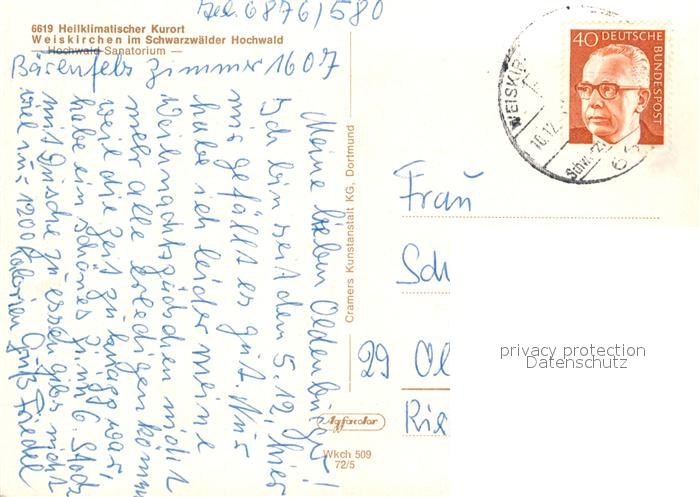 Tel. 06876/580
6619 Heilklimatischer Kurort
Weiskirchen im Schwarzwälder Hochwald
— Hochwald Sanatorium —
Bärenfels Zimmer 1607
Meine lieben Oldenburger!
Ich bin seit dem 5.12. hier
mir gefällt es gut. Nur
habe ich leider meine
Weihnachtspäckchen nicht
mehr alle erledigen könn
weil die Zeit zu knapp war,
habe ein schönes Zimm 6. Stock
mit Dusche zu essen gibts nicht
viel nur 1200 Kalorien Gruß Friedel
Cramers Kunstanstalt KG, Dortmund
Agfacolor
Wkch 509
72/5
40 DEUTSCHE BUNDESPOST
WEISKIR
10.12.
Schw.
Frau
Sch
29 Ol
privacy protection
Datenschutz